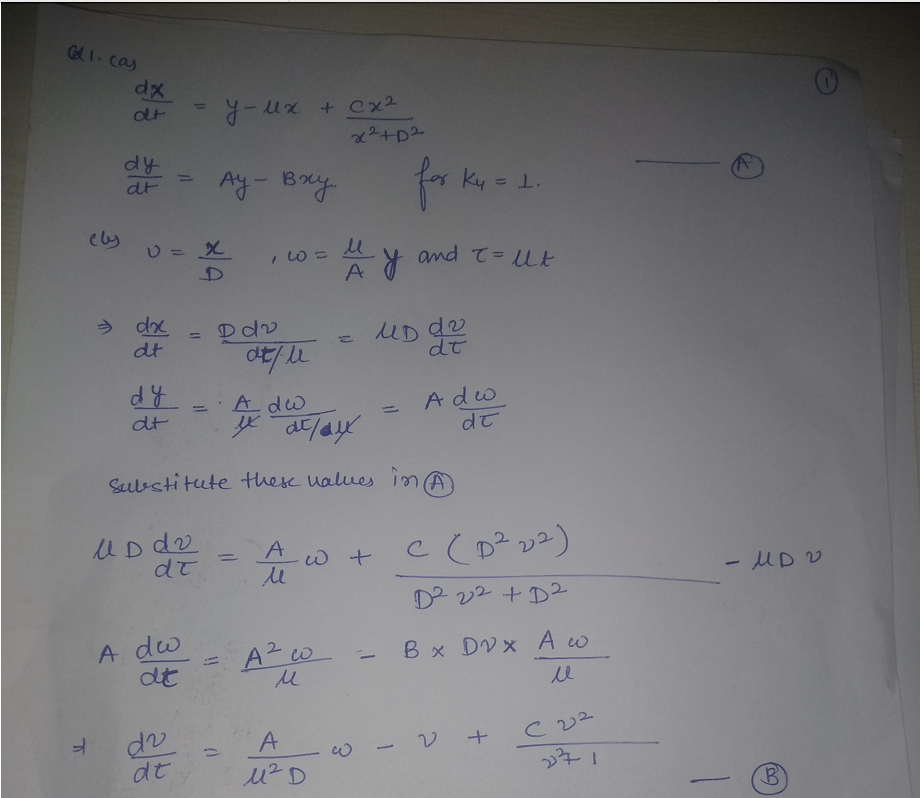 Q1. (a) ①
dx/dt = y - μx + Cx²/(x²+D²)
dy/dt = Ay - Bxy for K₄ = 1. — Ⓐ
(b) v = x/D , ω = μ/A y and τ = μt
⇒ dx/dt = D dv/(dτ/μ) = μD dv/dτ
dy/dt = A/μ dω/(dτ/μ) = A dω/dτ
Substitute these values in Ⓐ
μD dv/dτ = A/μ ω + C (D² v²)/(D² v² + D²) - μD v
A dω/dτ = A² ω/μ - B × Dv × A ω/μ
⇒ dv/dτ = A/(μ² D) ω - v + C v²/(v²+1) — Ⓑ